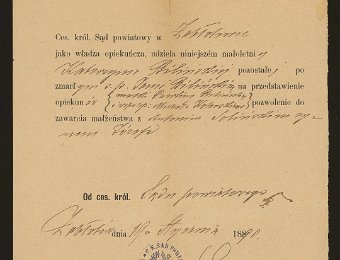 Ces. król. Sąd powiatowy w Zabłotowie
jako władza opiekuńcza, udziela niniejszém małoletni ej
Katarzynie Bilińskiej pozostałej po
zmarłym ś.p. Bilińskim na przedstawienie
opiekunów pozwolenie do
zawarcia małżeństwa z Antonim Sobińskim sy-
nem Józefa
Od ces. król. Sądu powiatowego
Zabłotów dnia Stycznia 1890.
C. K. SĄD POW.